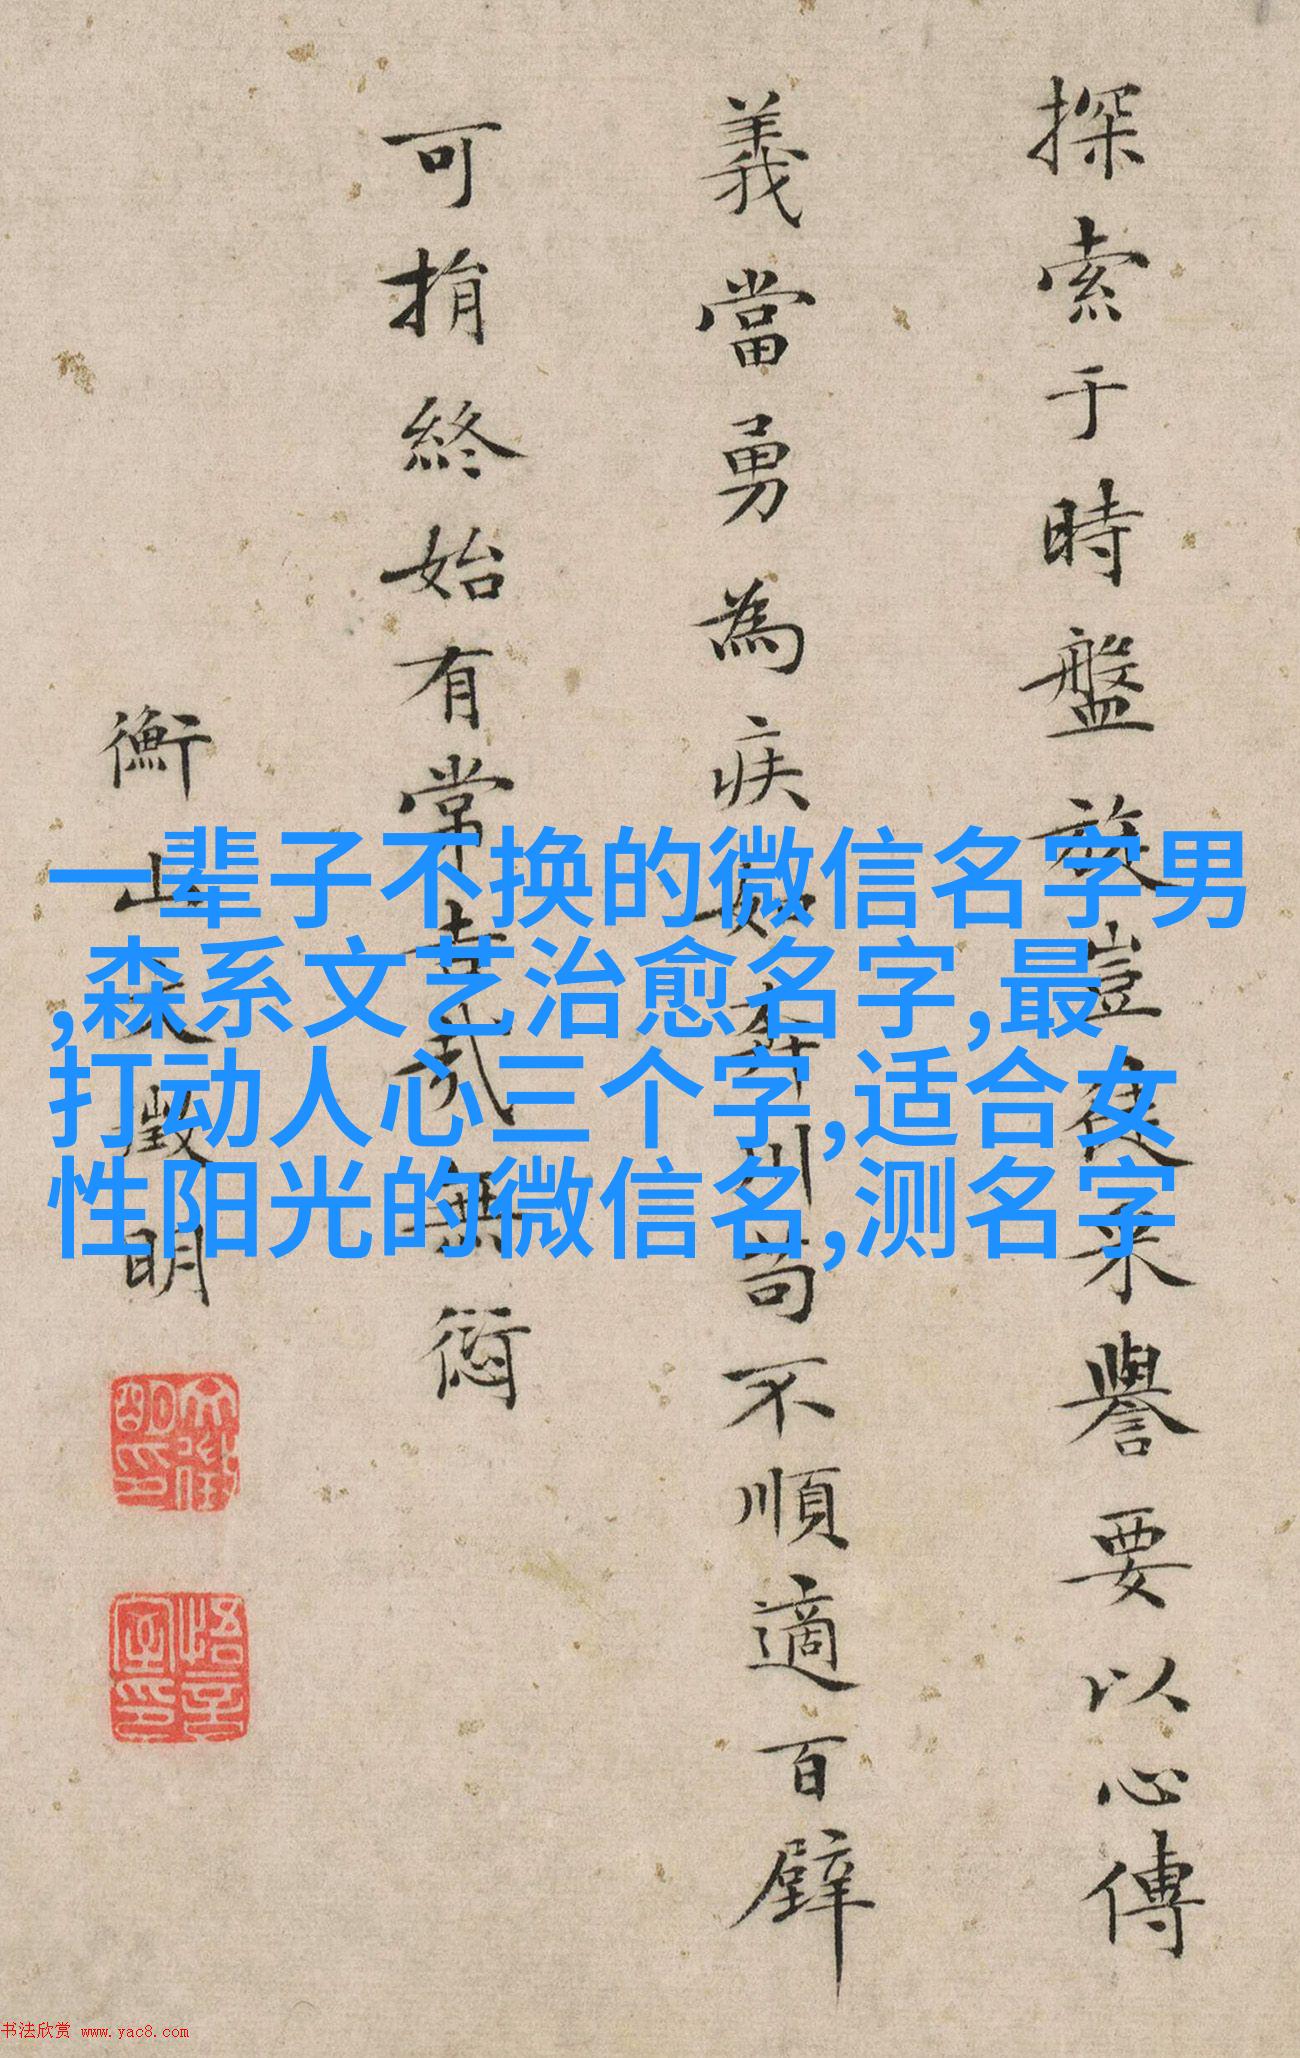 探索于時盤旋豈徒来譽要以心傳
義當勇為疾如奔川苟不順適百辟
可捐終始有常無愆
衡山文徵明
文徵明印
悟言室印
一辈子不换的微信名字男
,森系文艺治愈名字,最
打动人心三个字,适合女
性阳光的微信名,测名字
书法欣赏 www.yac8.com